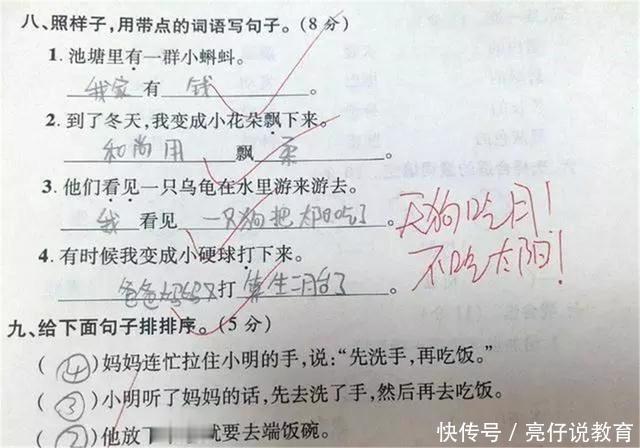 八、照样子,用带点的词语写句子。(8分)
1. 池塘里有一群小蝌蚪。
我家 有 钱 。
2. 到了冬天,我变成小花朵飘下来。
和尚用 飘 柔 。
3. 他们看见一只乌龟在水里游来游去。
我 看见 一只狗把太阳吃了 。
天狗吃月!
不吃太阳!
4. 有时候我变成小硬球打下来。
爸爸妈妈又打 算生二月台了 。
九、给下面句子排排序。(5分)
(④)妈妈连忙拉住小明的手,说:“先洗手,再吃饭。”
(③)小明听了妈妈的话,先去洗了手,然后再去吃饭。
(②)他放下 就要去端饭碗。
快传号 / 亮仔说教育